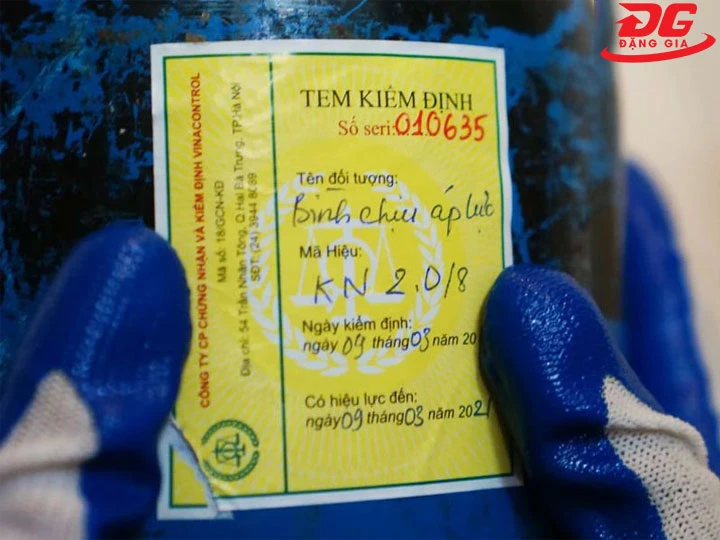 ĐG
ĐẶNG GIA
CÔNG TY CP CHỨNG NHẬN VÀ KIỂM ĐỊNH VINACONTROL
Mã số: 18/GCN-KĐ
Địa chỉ: 54 Trần Nhân Tông, Q.Hai Bà Trưng, TP.Hà Nội
SĐT: (24) 3944 8089
TEM KIỂM ĐỊNH
Số seri:010635
Tên đối tượng:
Bình chịu áp lực
Mã Hiệu:
KN 2.0/8
Ngày kiểm định:
ngày 09 tháng 03 năm 20
Có hiệu lực đến:
ngày 09 tháng 03 năm 202